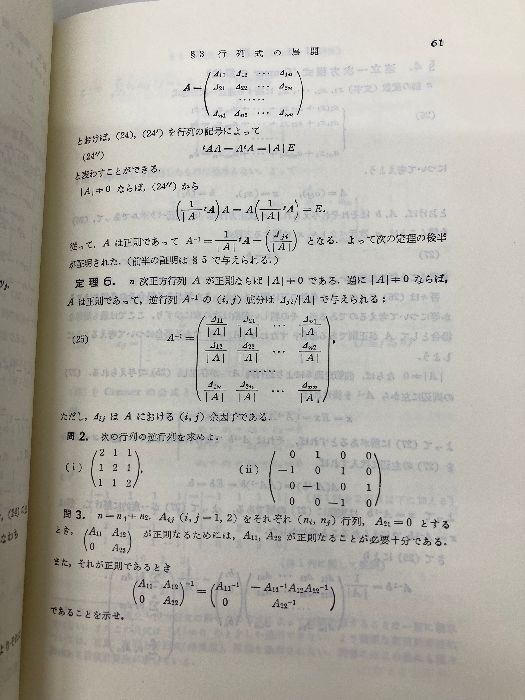 §3 行列式の展開
61
Δ=(Δ₁₁ Δ₁₂ ⋯ Δ₁ₙ
Δ₂₁ Δ₂₂ ⋯ Δ₂ₙ
⋯⋯
Δₙ₁ Δₙ₂ ⋯ Δₙₙ)
とおけば,(24),(24′) を行列の記号によって
(24″) ᵗΔA=AᵗΔ=|A|E
と表わすことができる.
|A|≠0 ならば,(24″) から
(1/|A| ᵗΔ)A=A(1/|A| ᵗΔ)=E.
従って,A は正則であって A⁻¹=1/|A| ᵗΔ=(Δⱼᵢ/|A|) となる.よって次の定理の後半
が証明された.(前半の証明は §5 で与えられる.)
定理 6. n 次正方行列 A が正則ならば |A|≠0 である.逆に |A|≠0 ならば,
A は正則であって,逆行列 A⁻¹ の (i, j) 成分は Δⱼᵢ/|A| で与えられる:
(25) A⁻¹=(Δ₁₁/|A| Δ₂₁/|A| ⋯ Δₙ₁/|A|
Δ₁₂/|A| Δ₂₂/|A| ⋯ Δₙ₂/|A|
⋯⋯
Δ₁ₙ/|A| Δ₂ₙ/|A| ⋯ Δₙₙ/|A|),
ただし,Δᵢⱼ は A における (i, j) 余因子である.
問 2. 次の行列の逆行列を求めよ.
(i) (2 1 1
1 2 1
1 1 2).
(ii) (0 1 0 0
−1 0 1 0
0 −1 0 1
0 0 −1 0)
問 3. n=n₁+n₂, Aᵢⱼ (i, j=1, 2) をそれぞれ (nᵢ, nⱼ) 行列, A₂₁=0 とする
とき, (A₁₁ A₁₂
0 A₂₂) が正則なるためには,A₁₁, A₂₂ が正則なることが必要十分である.
また,それが正則であるとき
(A₁₁ A₁₂
0 A₂₂)⁻¹=(A₁₁⁻¹ −A₁₁⁻¹A₁₂A₂₂⁻¹
0 A₂₂⁻¹)
であることを示せ.